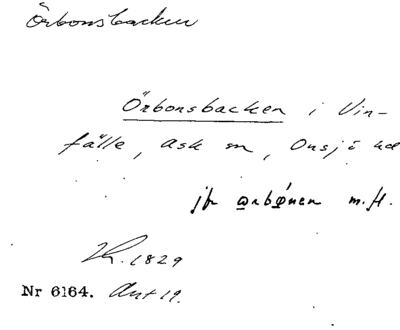 Örbonsbacken
Örbonsbacken i Vin-
fälle, Ask sn, Onsjö hd
jfr ørbǿnen m.fl.
1829
Nr 6164. Ant 19.